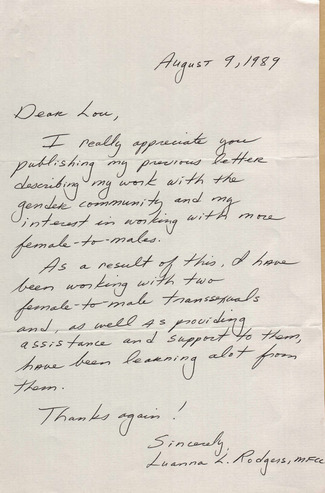 August 9, 1989
Dear Lou,
I really appreciate you
publishing my previous letter
describing my work with the
gender community and my
interest in working with more
female-to-males.
As a result of this, I have
been working with two
female-to-male transsexuals
and, as well as providing
assistance and support to them,
have been learning alot from
them.
Thanks again!
Sincerely,
Luanna L. Rodgers, MFCC